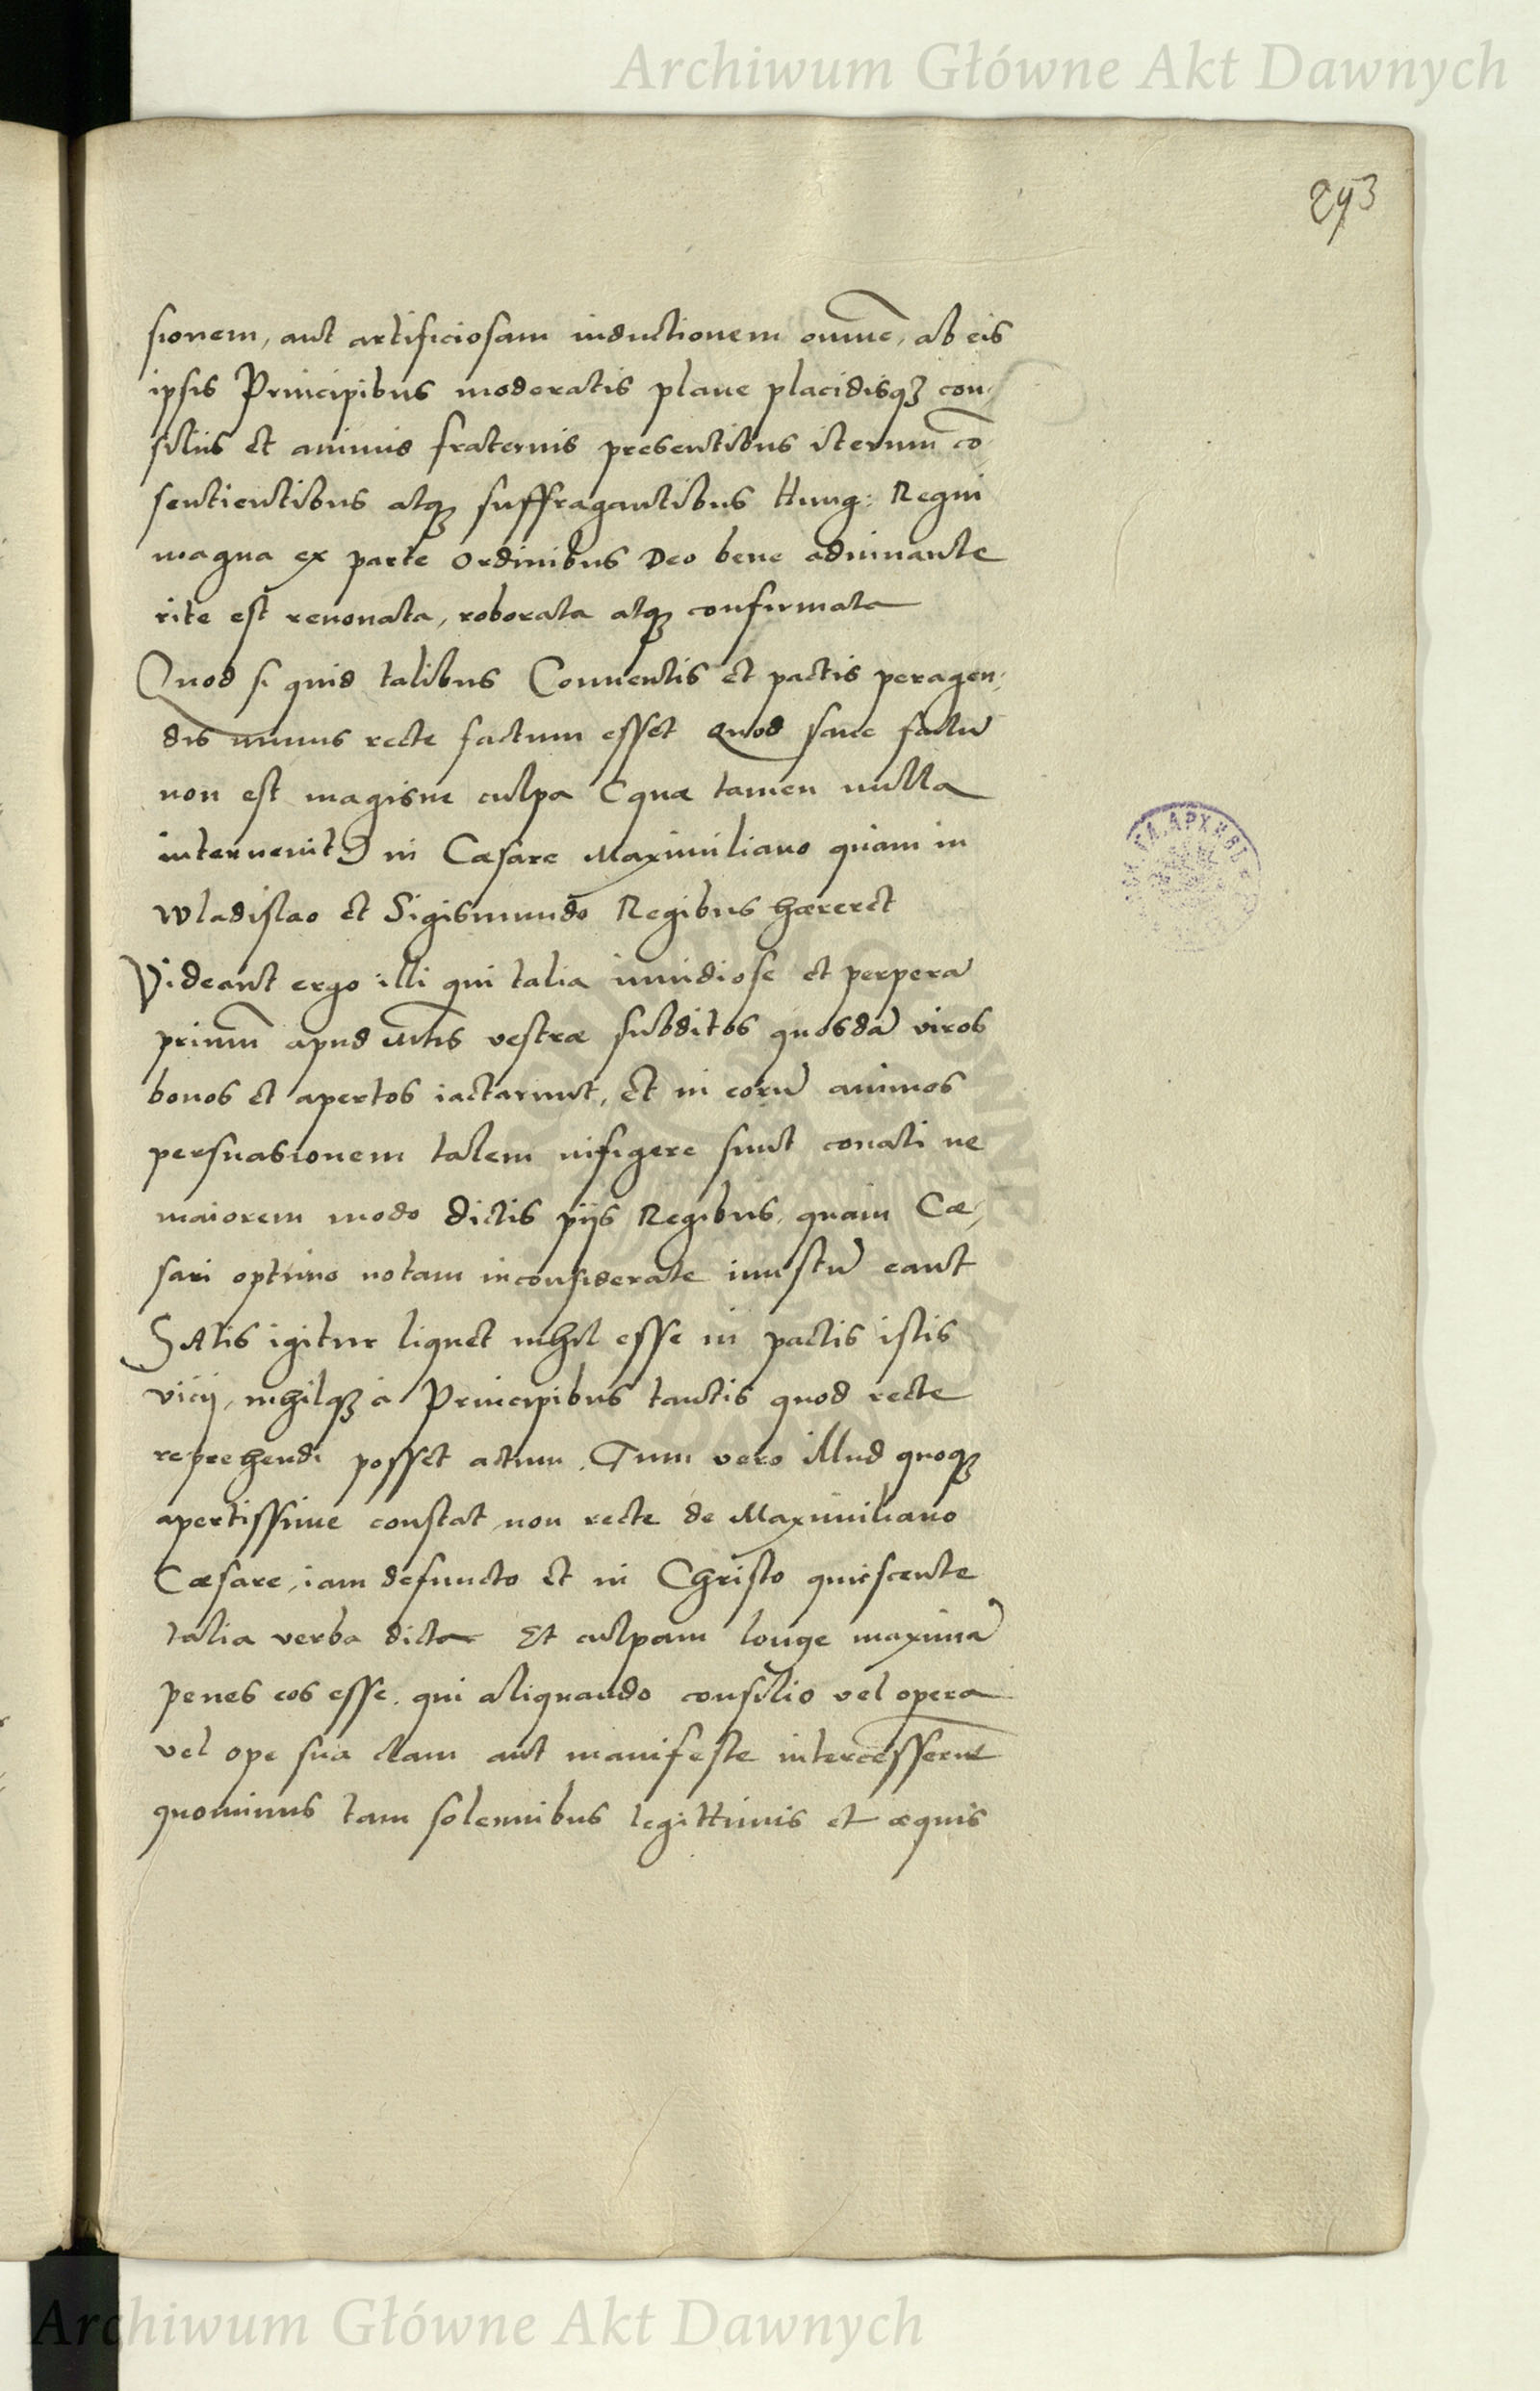 Archiwum Główne Akt Dawnych
293
sionem, aut artificiosam inductionem omnē, ab eis
ipsis Principibus moderatis plane placidisqȝ con-
silijs et animis fraternis presentibus iterum cō
sentientibus atqȝ suffragantibus Hung: Regni
magna ex parte Ordinibus Deo bene adiuuante
rite est renouata, roborata atqȝ confirmata
Quod si quid talibus Conuentis et pactis peragen-
dis minus recte factum esset Quod sane factū
non est magisne culpa (quæ tamen nulla
interuenit) in Cæsare Maximiliano quam in
Wladislao et Sigismundo Regibus hæreret
Videant ergo illi qui talia inuidiose et perperā
primū apud Mtis vestræ subditos quosdā viros
bonos et apertos iactarunt, et in eorū animos
persuasionem talem infigere sunt conati ne
maiorem modo dictis pijs Regibus, quam Cæ-
sari optimo notam inconsiderate inustū eant
Satis igitur liquet nihil esse in pactis istis
vicij, nihilqȝ a Principibus tantis quod recte
reprehendi posset actum. Tum vero illud quoqȝ
apertissime constat, non recte de Maximiliano
Cæsare, iam defuncto et in Christo quiescente
talia verba dicta Et culpam longe maximā
penes eos esse, qui aliquando consilio vel opera
vel ope sua clam aut manifeste intercesserūt
quominus tam solemnibus legittimis et æquis
Archiwum Główne Akt Dawnych